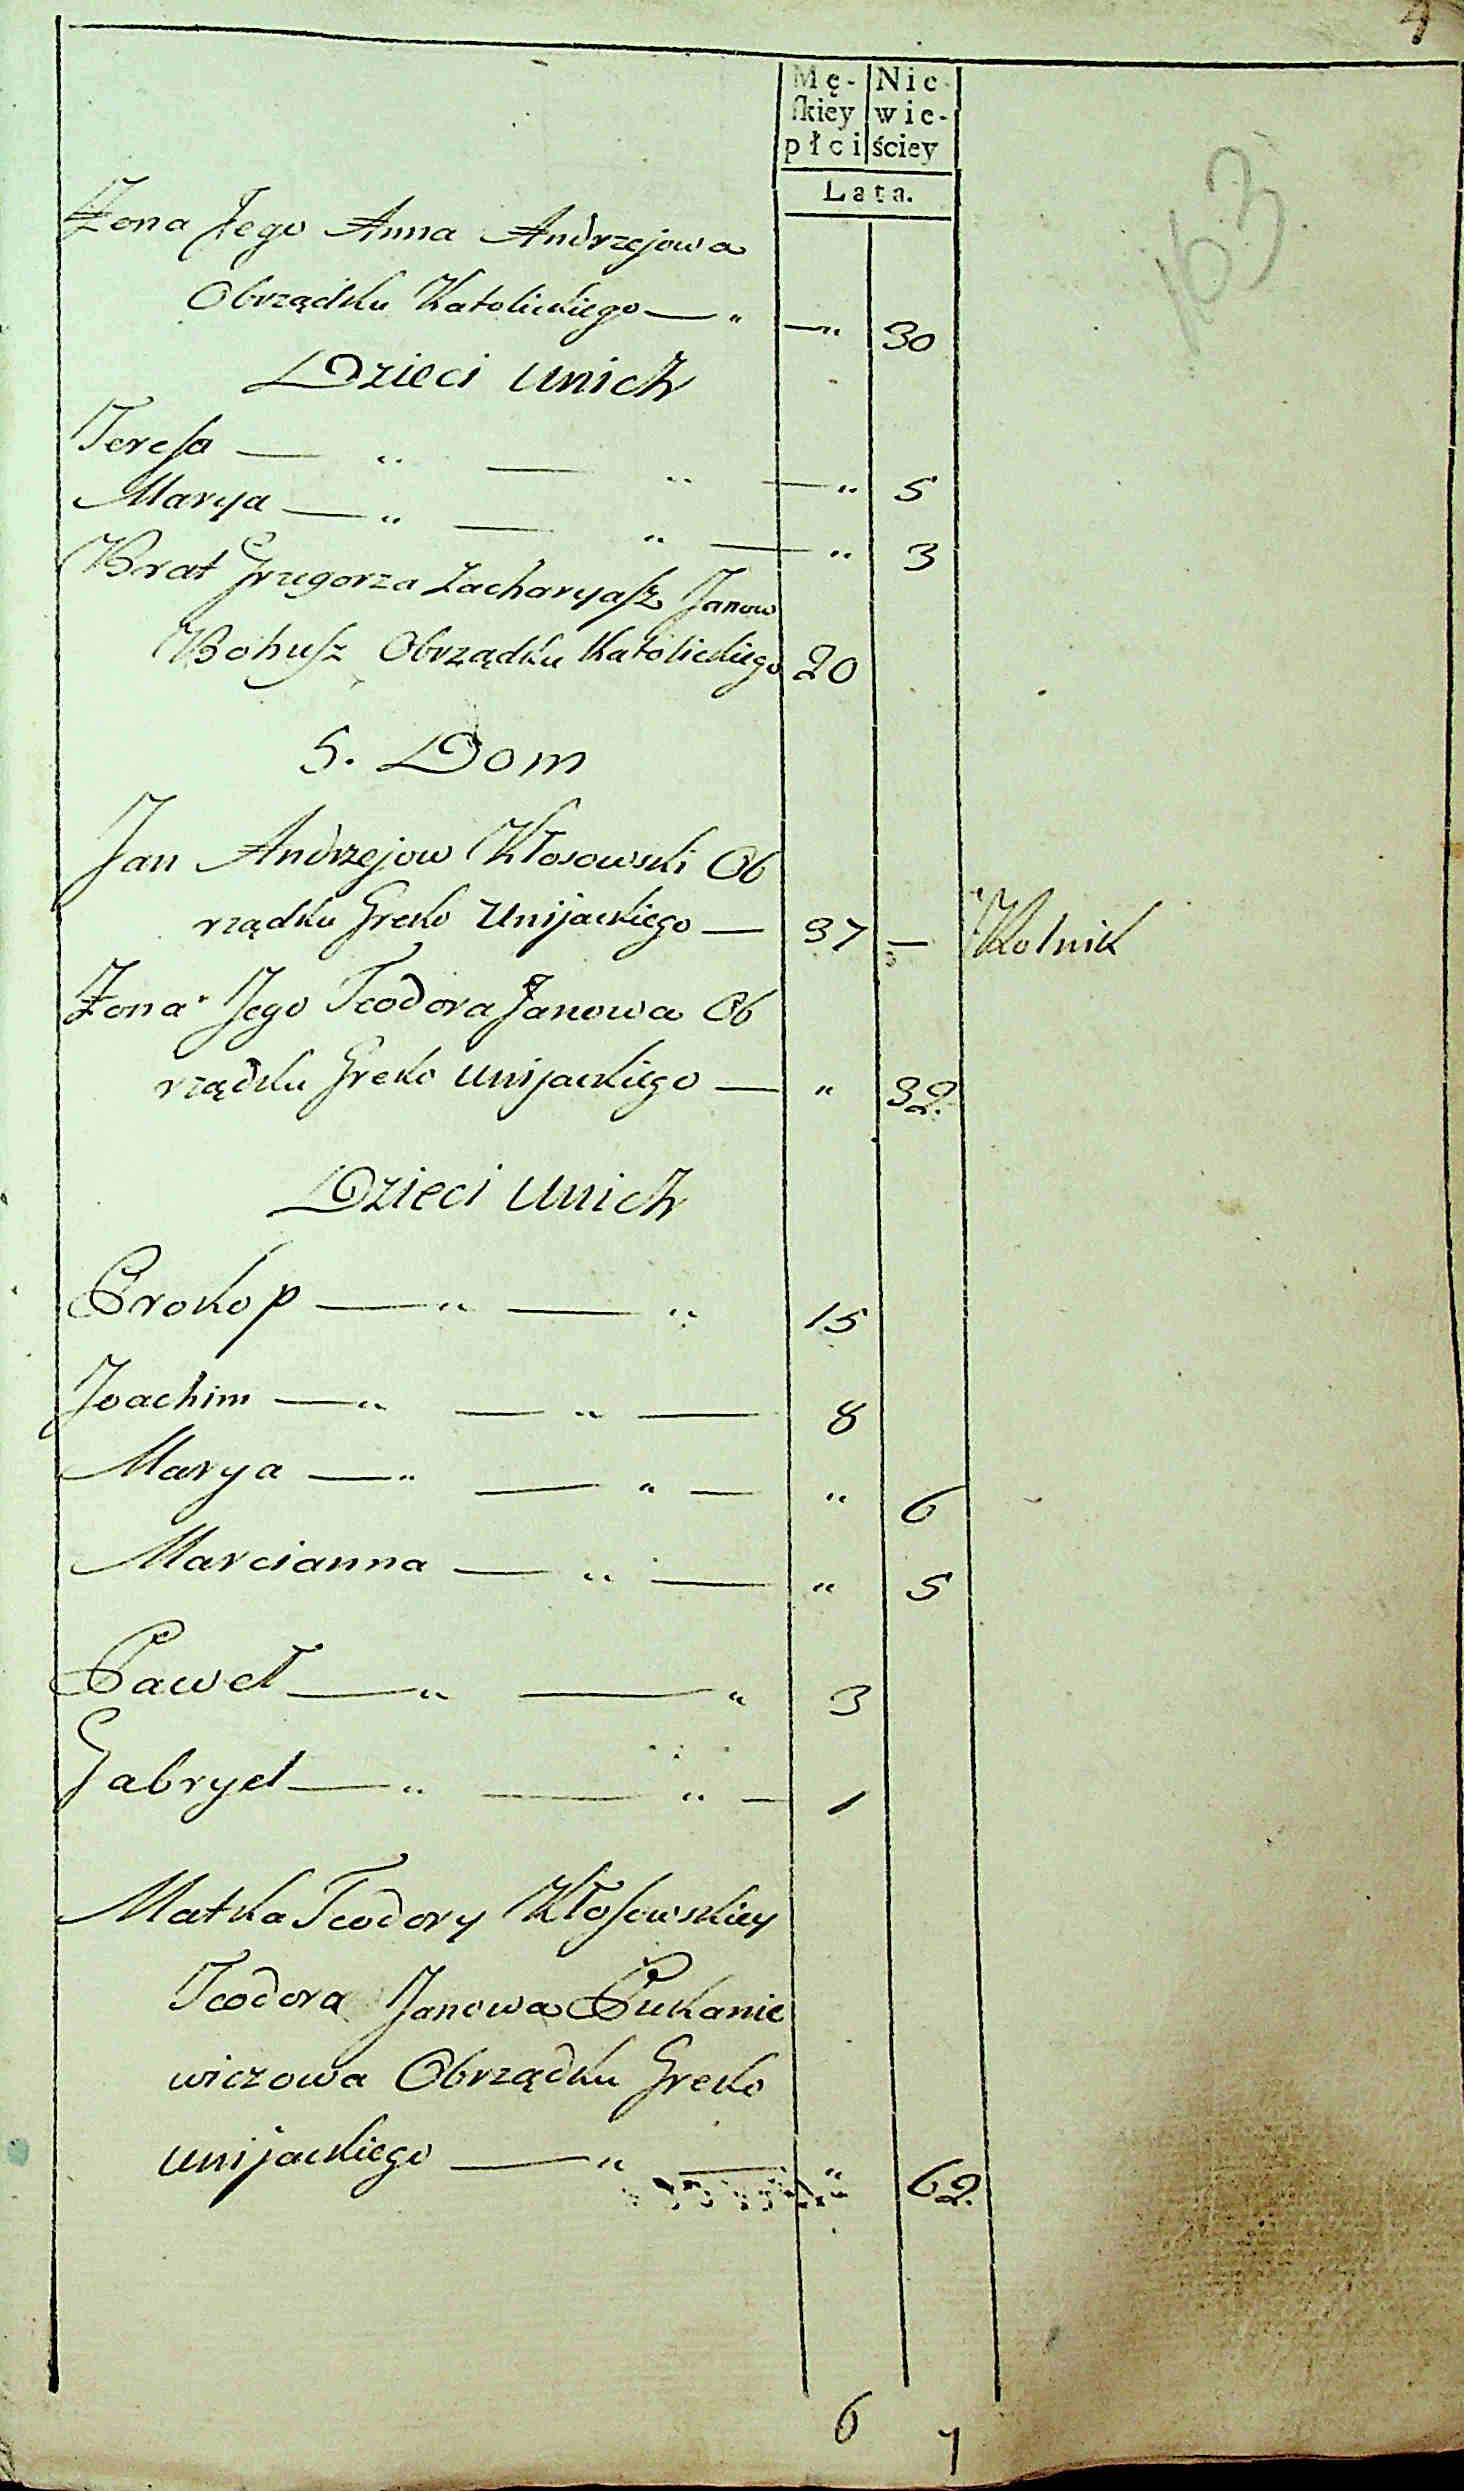 4
Mę- Nie-
ſkiey wie-
płci ściey
Lata.
163
Żona Jego Anna Andrzejowa
Obrządku Katolickiego — " — " 30
Dzieci unich
Teresa — " — " — " 5
Marya — " — " — " 3
Brat Grzegorza Zacharyasz Janow
Bohusz Obrządku Katolickiego 20
5. Dom
Jan Andrzejow Kłosowski Ob
rządku Greko Unijackiego — 37 — Rolnik
Żona Jego Teodora Janowa Ob
rządku Greko unijackiego — " 32.
Dzieci unich
Prokop — " — " 15
Joachim — " — " — 8
Marya — " — " — " 6
Marcianna — " — " 5
Paweł — " — " 3
Gabryel — " — " — 1
Matka Teodory Kłosowskiey
Teodora Janowa Pukanie
wiczowa Obrządku Greko
unijackiego — " — " 62.
6 7